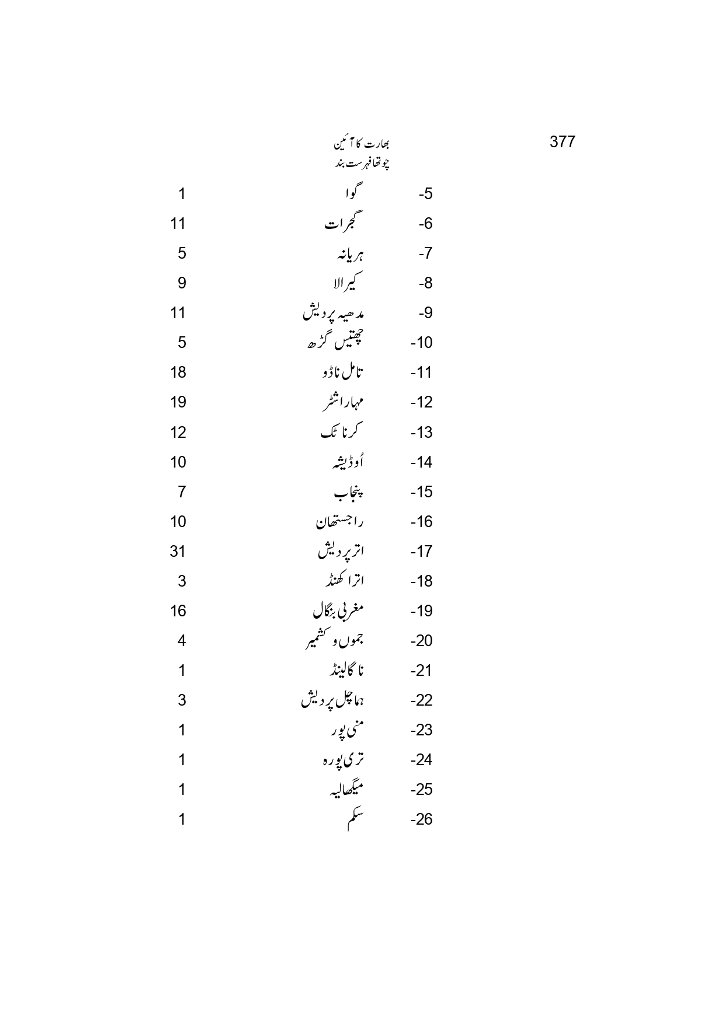 377 بھارت کا آئین
چوتھا فہرست بند
5- گوا 1
6- گجرات 11
7- ہریانہ 5
8- کیرالا 9
9- مدھیہ پردیش 11
10- چھتیس گڑھ 5
11- تامل ناڈو 18
12- مہاراشٹر 19
13- کرناٹک 12
14- اُوڈیشہ 10
15- پنجاب 7
16- راجستھان 10
17- اترپردیش 31
18- اتراکھنڈ 3
19- مغربی بنگال 16
20- جموں و کشمیر 4
21- ناگالینڈ 1
22- ہماچل پردیش 3
23- منی پور 1
24- تری پورہ 1
25- میگھالیہ 1
26- سکم 1